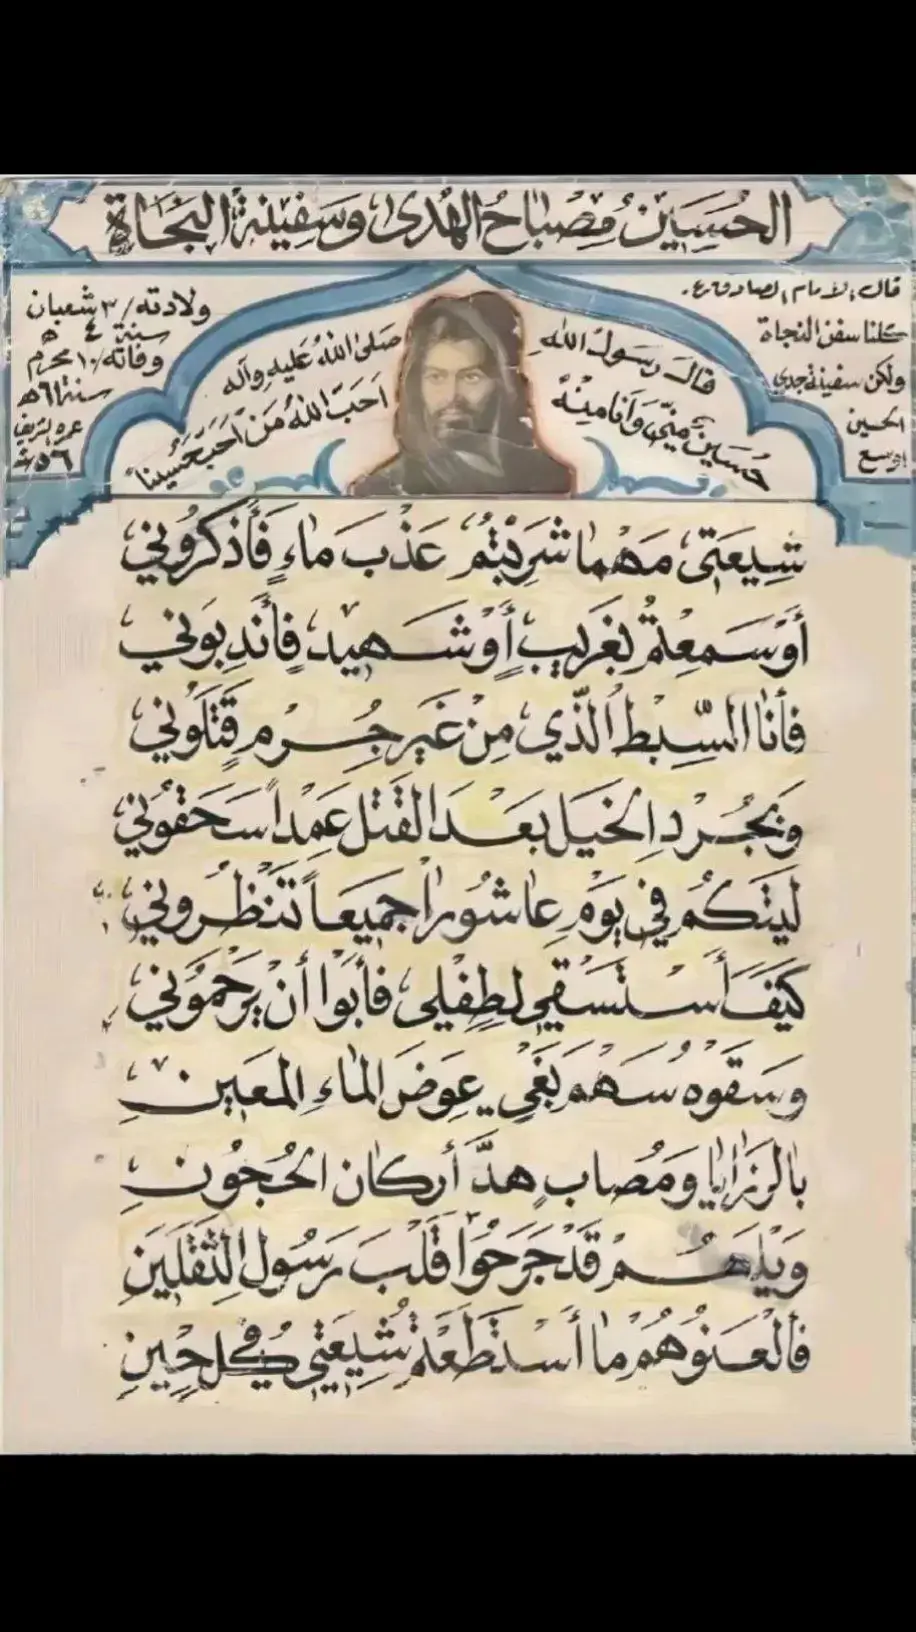 الحُسَيْنُ مِصْبَاحُ الهُدىٰ وَسَفِينَةُ النَّجَاة
قال الامام الصادق ع.
كلنا سفن النجاة
ولكن سفينة جدي
الحسين
اوسع
قالَ رسَولُ اللهِ
صَلىٰ اللهُ عَليهِ وآله
حُسَين مِنّي وَأنَا مِنهُ
اَحَبَّ اللهُ مَنْ اَحَبَّ حُسَيناً
ولادته/٣ شعبان
سنة ٤ ه
وفاته/١٠ محرم
سنة ٦١ه
عمره الشريف
شِيعَتي مَهْما شَرِبْتُمْ عَذْبَ مَاءٍ فَأذكرُوني
أوْ سَمِعتُمْ بغَريبٍ أوْ شَهيدٍ فأندِبوُني
فأنا السِّبطُ الذّي مِنْ غَيرِ جُرمٍ قَتَلوُني
وَبجُردِ الخَيلِ بَعْدَ القَتلِ عَمْداً سَحَقوُني
لَيتَكُم في يَوْمِ عاشُورا جَميعَاً تَنْظُروني
كَيْفَ أسْتَسْقي لِطِفلي فأبَوا أنْ يَرْحَموُني
وسَقَوهُ سَهْمَ بَغْيٍ عِوَضَ الماءِ المعَين
يالرَزَايا وَمُصابٍ هدَّ أركان الحُجُونِ
وَيْلَهُمْ قَدْ جَرَحَوُا قَلْبَ رَسُولِ الثَقَلَيْنِ
فالْعَنوُهُمْ ما أسْتَطَعْتُمْ شِيعَتي في كُلِ حِينِ